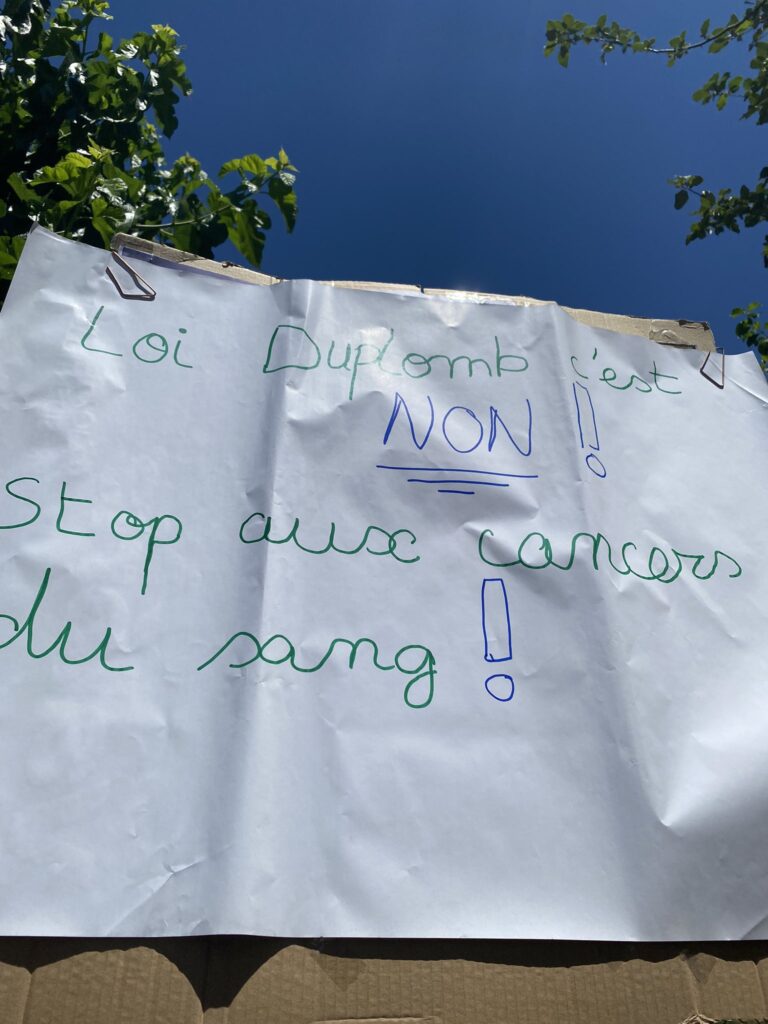 Loi Duplomb c'est
NON !
Stop aux cancers
du sang !